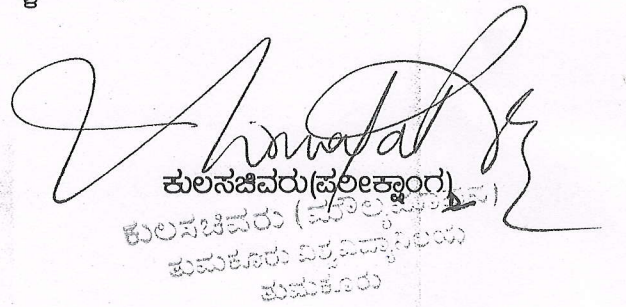 ಕುಲಸಚಿವರು(ಪರೀಕ್ಷಾಂಗ)
ಕುಲಸಚಿವರು (ಮೌಲ್ಯಮಾಪನ)
ತುಮಕೂರು ವಿಶ್ವವಿದ್ಯಾನಿಲಯ
ತುಮಕೂರು